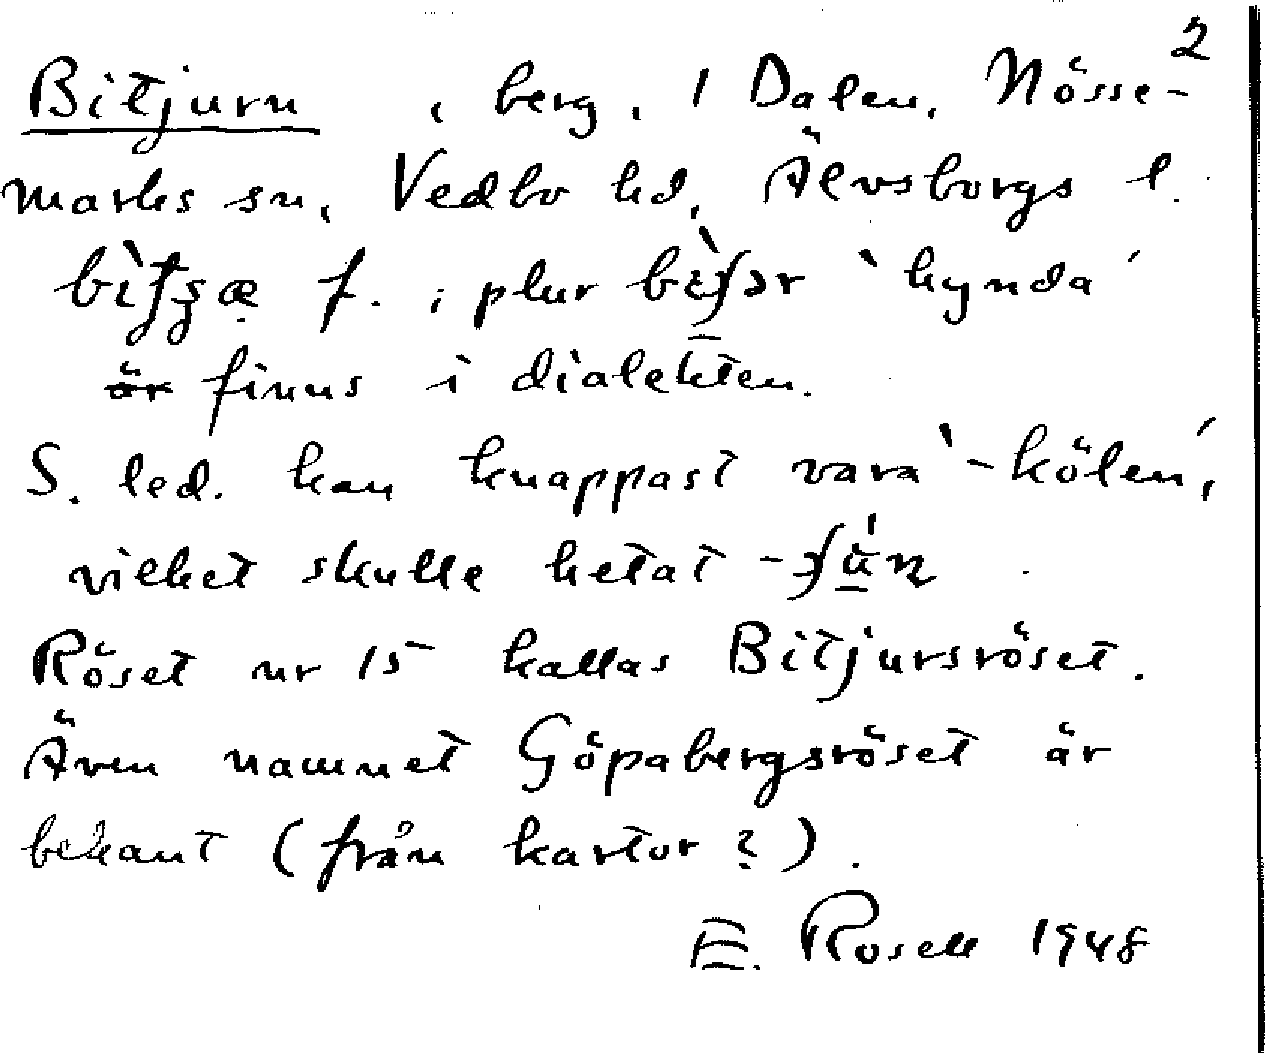 2
Bitjurn , berg, i Dalen, Nösse-
marks sn, Vedbo hd, Älvsborgs l.
f. i plur 'hynda'
är finns i dialekten.
S. led. kan knappast vara '-kölen',
vilket skulle hetat
Röset nr 15 kallas Bitjursröset.
Även namnet Göpabergsröset är
bekant (från kartor?).
E. Rosell 1948